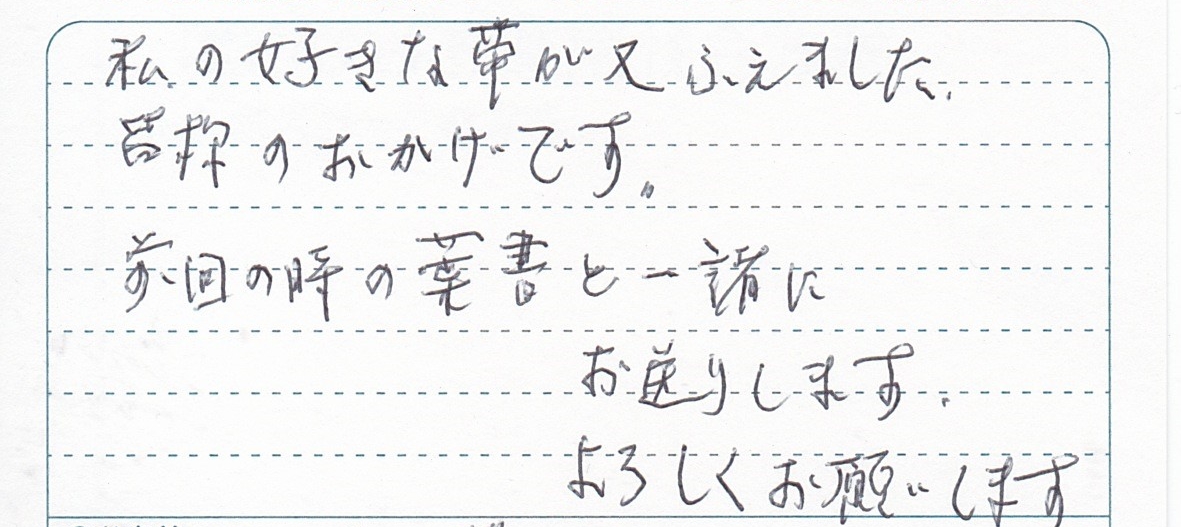 私の好きな帯が又ふえました.
のおかげです。
前回の時の葉書と一諸に
お送りします.
よろしくお願いします